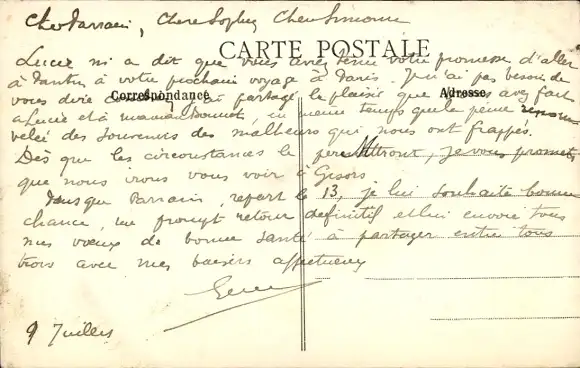 Cher Parrain, Chere Sophy Chere Simone
CARTE POSTALE
Lucie m'a dit que vous avez tenu votre promesse d'aller
à Pantin à votre prochain voyage à Paris. Je n'ai pas besoin de
vous dire combien j'ai partagé le plaisir que vous avez fait
Correspondance
Adresse
à Lucie et à maman Bonnet, en même temps que la peine
velée des souvenirs des malheurs qui nous ont frappés.
Dès que les circonstances le permettront, je vous promets
que nous irons vous voir à Gisors.
Puisque Parrain, repart le 13, je lui souhaite bonne
chance, un prompt retour définitif et lui envoie tous
mes voeux de bonne santé à partager entre tous
trois avec mes baisers affectueux
9 Juillet